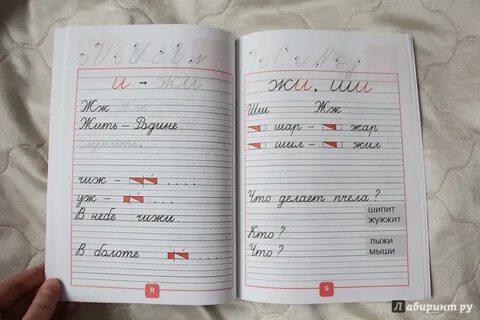 и → жи
Жж Жж
Жить – Родине
служить.
чиж –
уж –
В небе чижи.
В болоте
8
жи, ши
Шш Жж
шар – жар
шил – жил
Что делает пчела?
шипит
жужжит
Кто?
Что?
лыжи
мыши
9
Лабиринт.ру